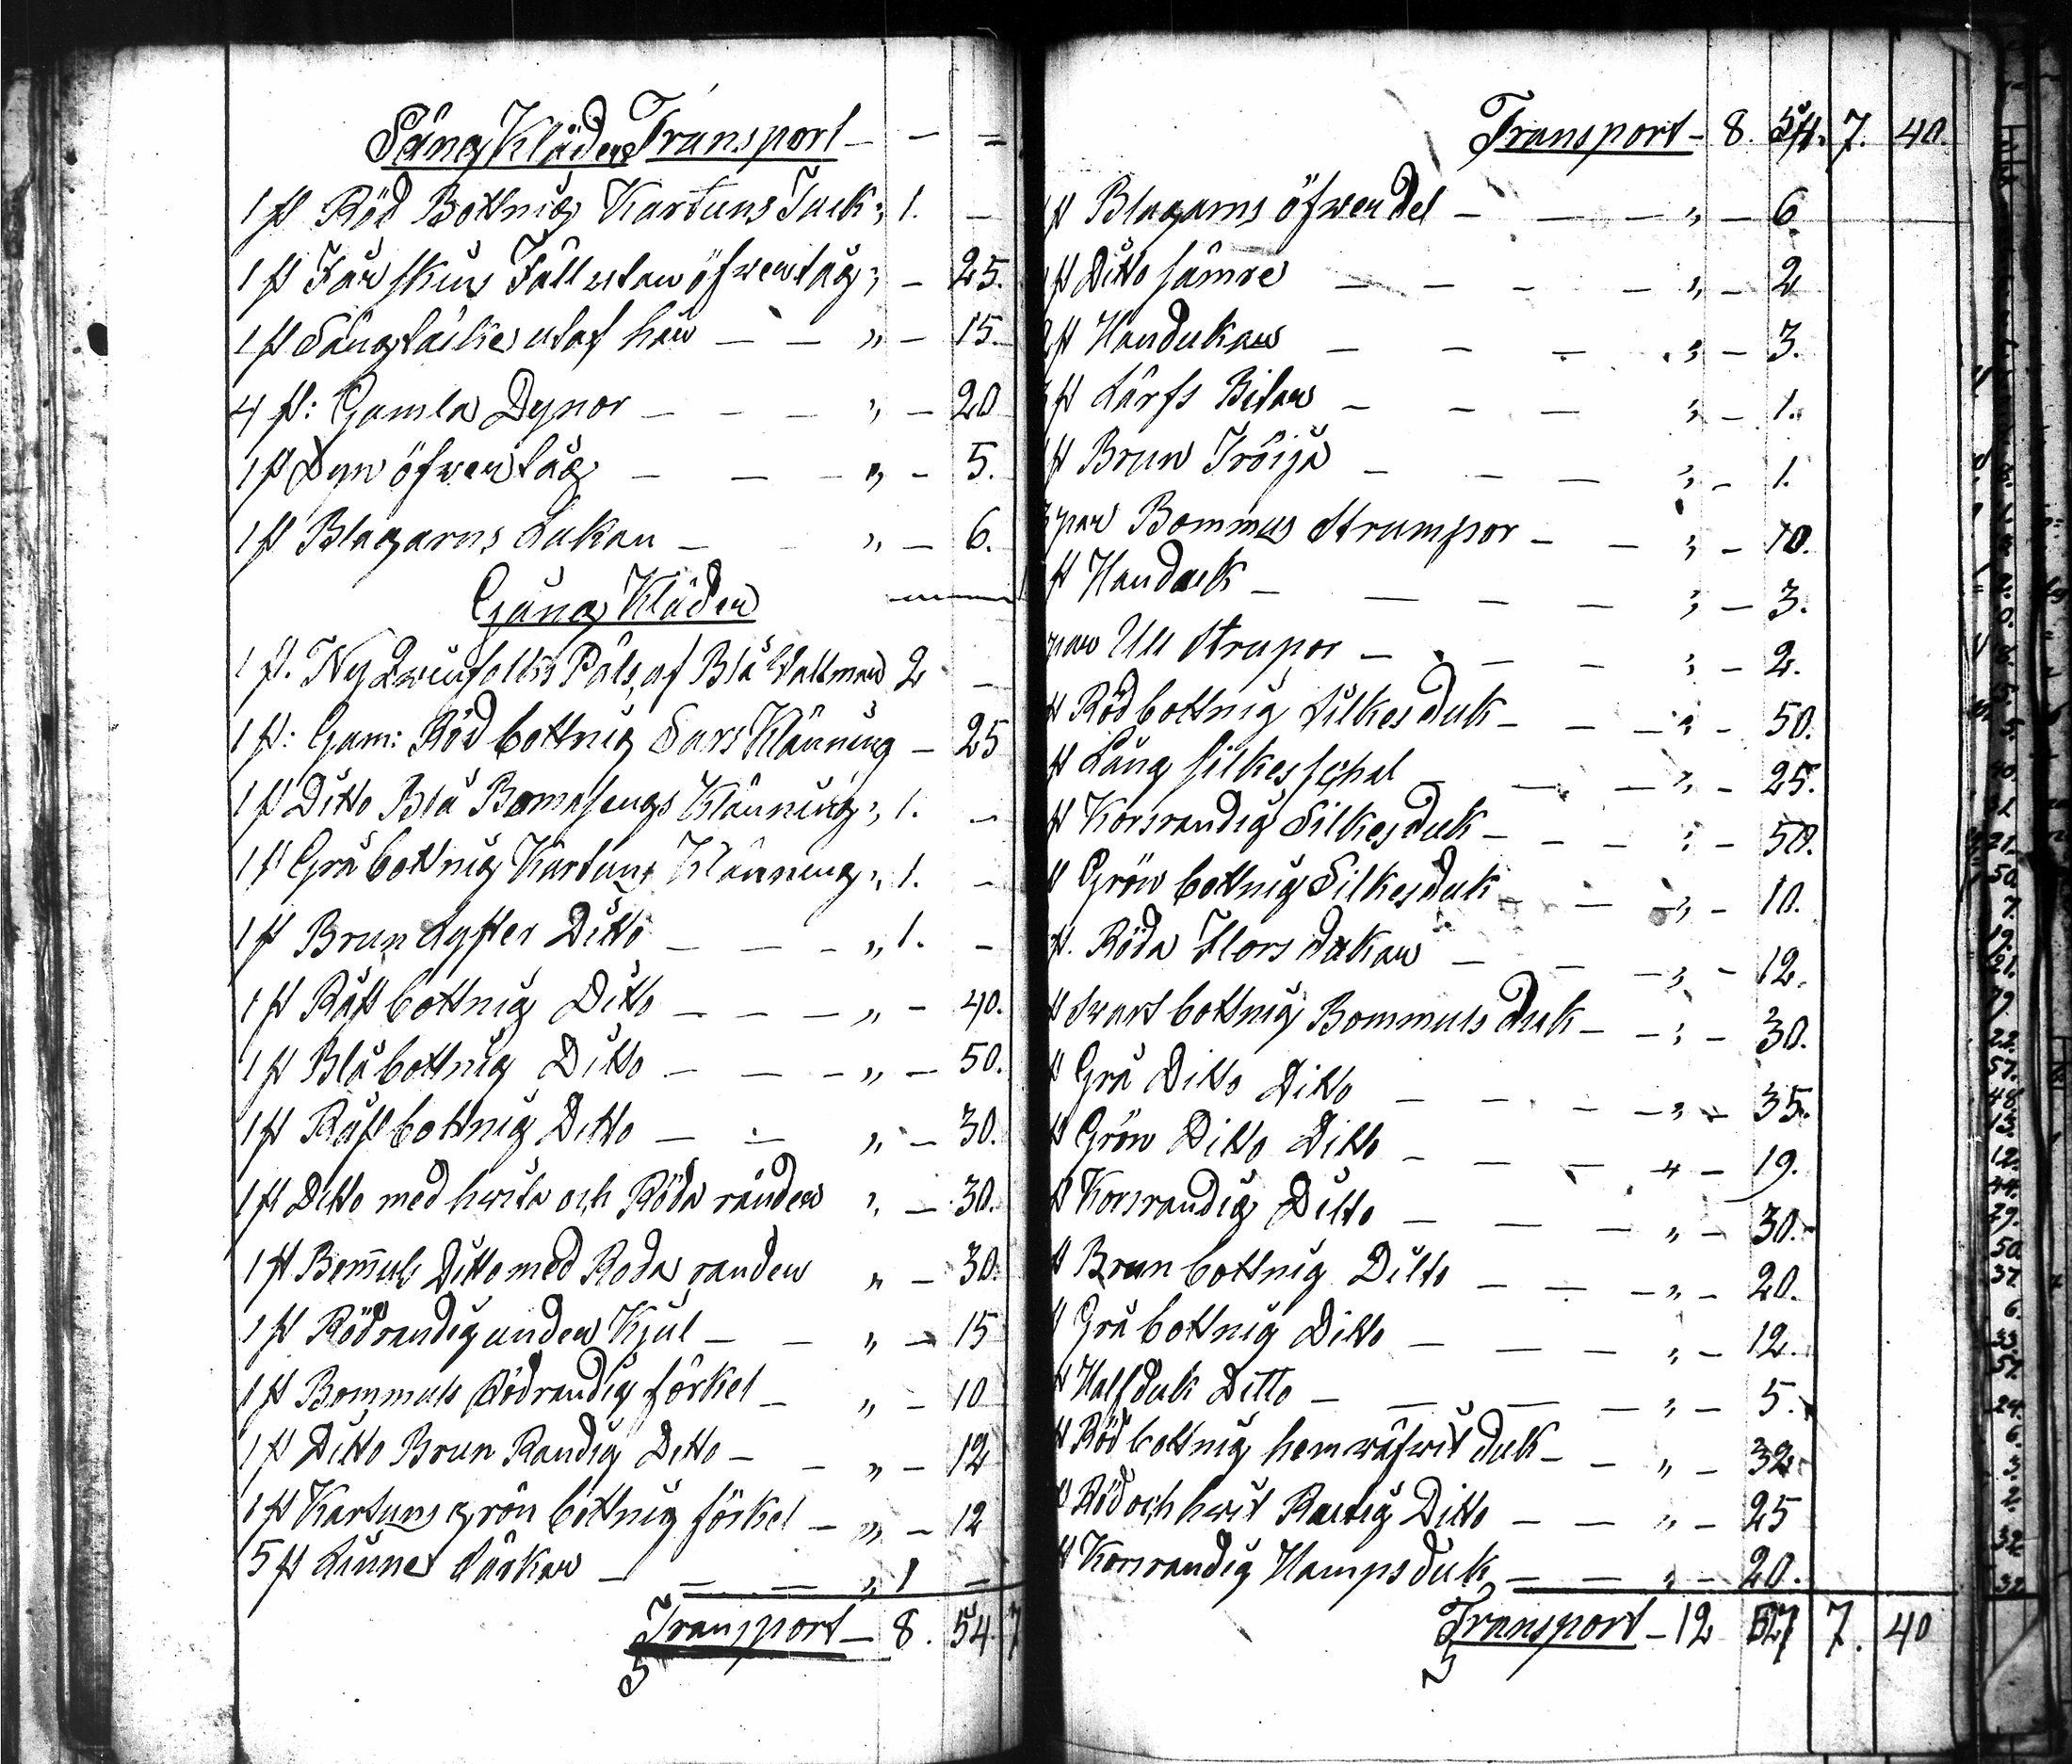 Säng Kläder Transport — — =
1 st Röd Bottnig Kartuns Täck „ 1. —
1 st Får skins Fäll utan öfwertåg „ — 25.
1 st Sängtäcke utaf hår — — „ — 15.
4 st: Gamla Dynor — — — „ — 20
1 st Dyn öfwertåg — — — „ — 5.
1 st Blagarns Lakan — — „ — 6.
Gång Kläder
1 st. Ny Qwinfolks Päls af Blå Wallmar 2 —
1 st: Gam: Röd bottnig Sars Klänning — 25
1 st Ditto Blå Bomasengs Klänning „ 1. —
1 st Grå bottnig Kartuns Klänning „ 1. —
1 st Brun Lyster Ditto — — — „ 1. —
1 st Råst bottnig Ditto — — — „ — 40.
1 st Blå bottnig Ditto — — — „ — 50.
1 st Råst bottnig Ditto — — „ — 30.
1 st Ditto med hwita och Röda ränder „ — 30.
1 st Bomuls Ditto med Roda rander „ — 30.
1 st Rödrandig under Kjul — — „ — 15
1 st Bommuls Rödrandig förkel — „ — 10
1 st Ditto Brun Randig Ditto — — „ — 12
1 st Kartuns grön bottnig förkel — „ — 12
5 st Linne Särkar — — — „ 1 —
Transport — 8. 54 7
Transport — 8. 54. 7. 40.
st Blagarns öfwerdel — — — „ — 6.
st Ditto sämre — — — — „ — 2
2 st Handukar — — — „ — 3.
3 st Lärfs Bitar — — — „ — 1.
st Brun Tröija — — — „ — 1.
3 par Bommuls Strumpor — — „ — 10.
st Handuk — — — — „ — 3.
par Ull Strupor — — — „ — 2.
st Röd bottnig Silkes duk — — „ — 50.
st Lång silkes schal — — — „ — 25.
st Korsrandig Silkes duk — — — „ — 50.
st Grön bottnig Silkes duk — — „ — 10.
st. Röda Flors dukar — — — „ — 12.
st Swart bottnig Bommuls duk — — „ — 30.
st Grå Ditto Ditto — — — — „ — 35.
st Grön Ditto Ditto — — — „ — 19.
st Korsrandig Ditto — — — „ — 30.
st Brun bottnig Ditto — — — „ — 20.
st Grå bottnig Ditto — — — „ — 12.
st Half duk Ditto — — — — „ — 5.
st Röd bottnig hemwäfwit duk — — „ — 32
st Röd och hwit Randig Ditto — — „ — 25
st Korsrandig Hamps duk — — „ — 20.
Transport — 12 7. 40